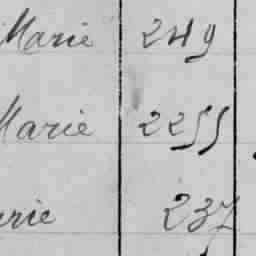 Marie 249
Marie 2255
rie 237